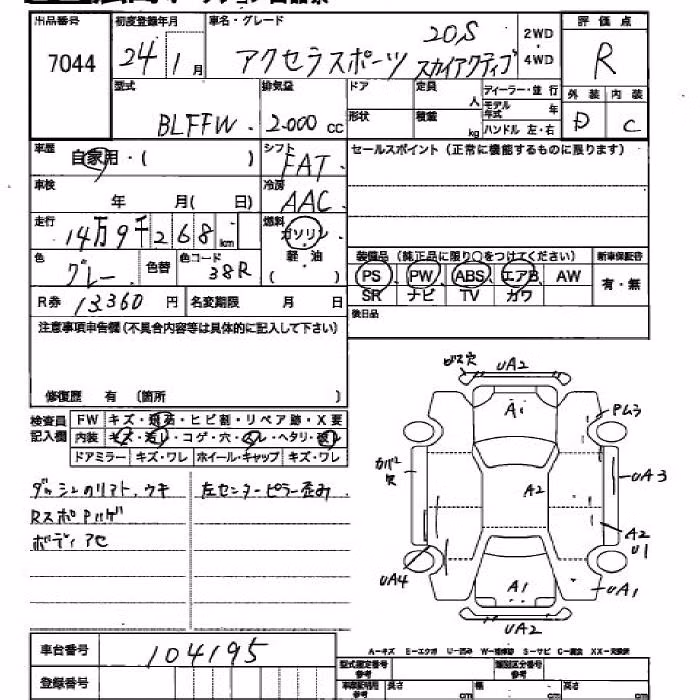 出品番号 初度登録年月 車名・グレード 20S 2WD 評価点
7044 24年1月 アクセラスポーツ スカイアクティブ 4WD R
型式 排気量 ドア 定員 人 ディーラー・並行 外装 内装
BLFFW 2,000 cc 形状 積載 kg モデル年式 年 ハンドル 左・右 D C
車歴 自家用・( ) シフト FAT セールスポイント(正常に機能するものに限ります)
車検 年 月( 日) 冷房 AAC
走行 14万9千268 km 燃料 ガソリン
色 グレー 色替 色コード 38R 軽・油 ( ) 装備品(純正品に限り○をつけてください) 新車保証書
PS PW ABS エアB AW 有・無
R券 13,360 円 名変期限 月 日 SR ナビ TV カワ
注意事項申告欄(不具合内容等は具体的に記入して下さい) 後日品
修復歴 有(箇所 )
検査員 FW キズ・飛石・ヒビ割・リペア跡・X要
記入欄 内装 キズ・汚れ・コゲ・穴・スレ・ヘタリ・破れ
ドアミラー キズ・ワレ ホイール・キャップ キズ・ワレ
ダッシュのリアト、ウキ 左センターピラー歪み
RスポPハゲ
ボディアセ
ビス穴 UA2
A1 PM3
カバー欠 A2 UA3
A2
U1
UA4 A1 UA1
UA2
車台番号 104195
A-キズ E-エクボ U-凹み W-補修跡 S-サビ C-腐食 XX-交換済
登録番号 型式指定番号 参考 類別区分番号 参考
車庫証明用 参考 長さ cm 幅 cm 高さ cm